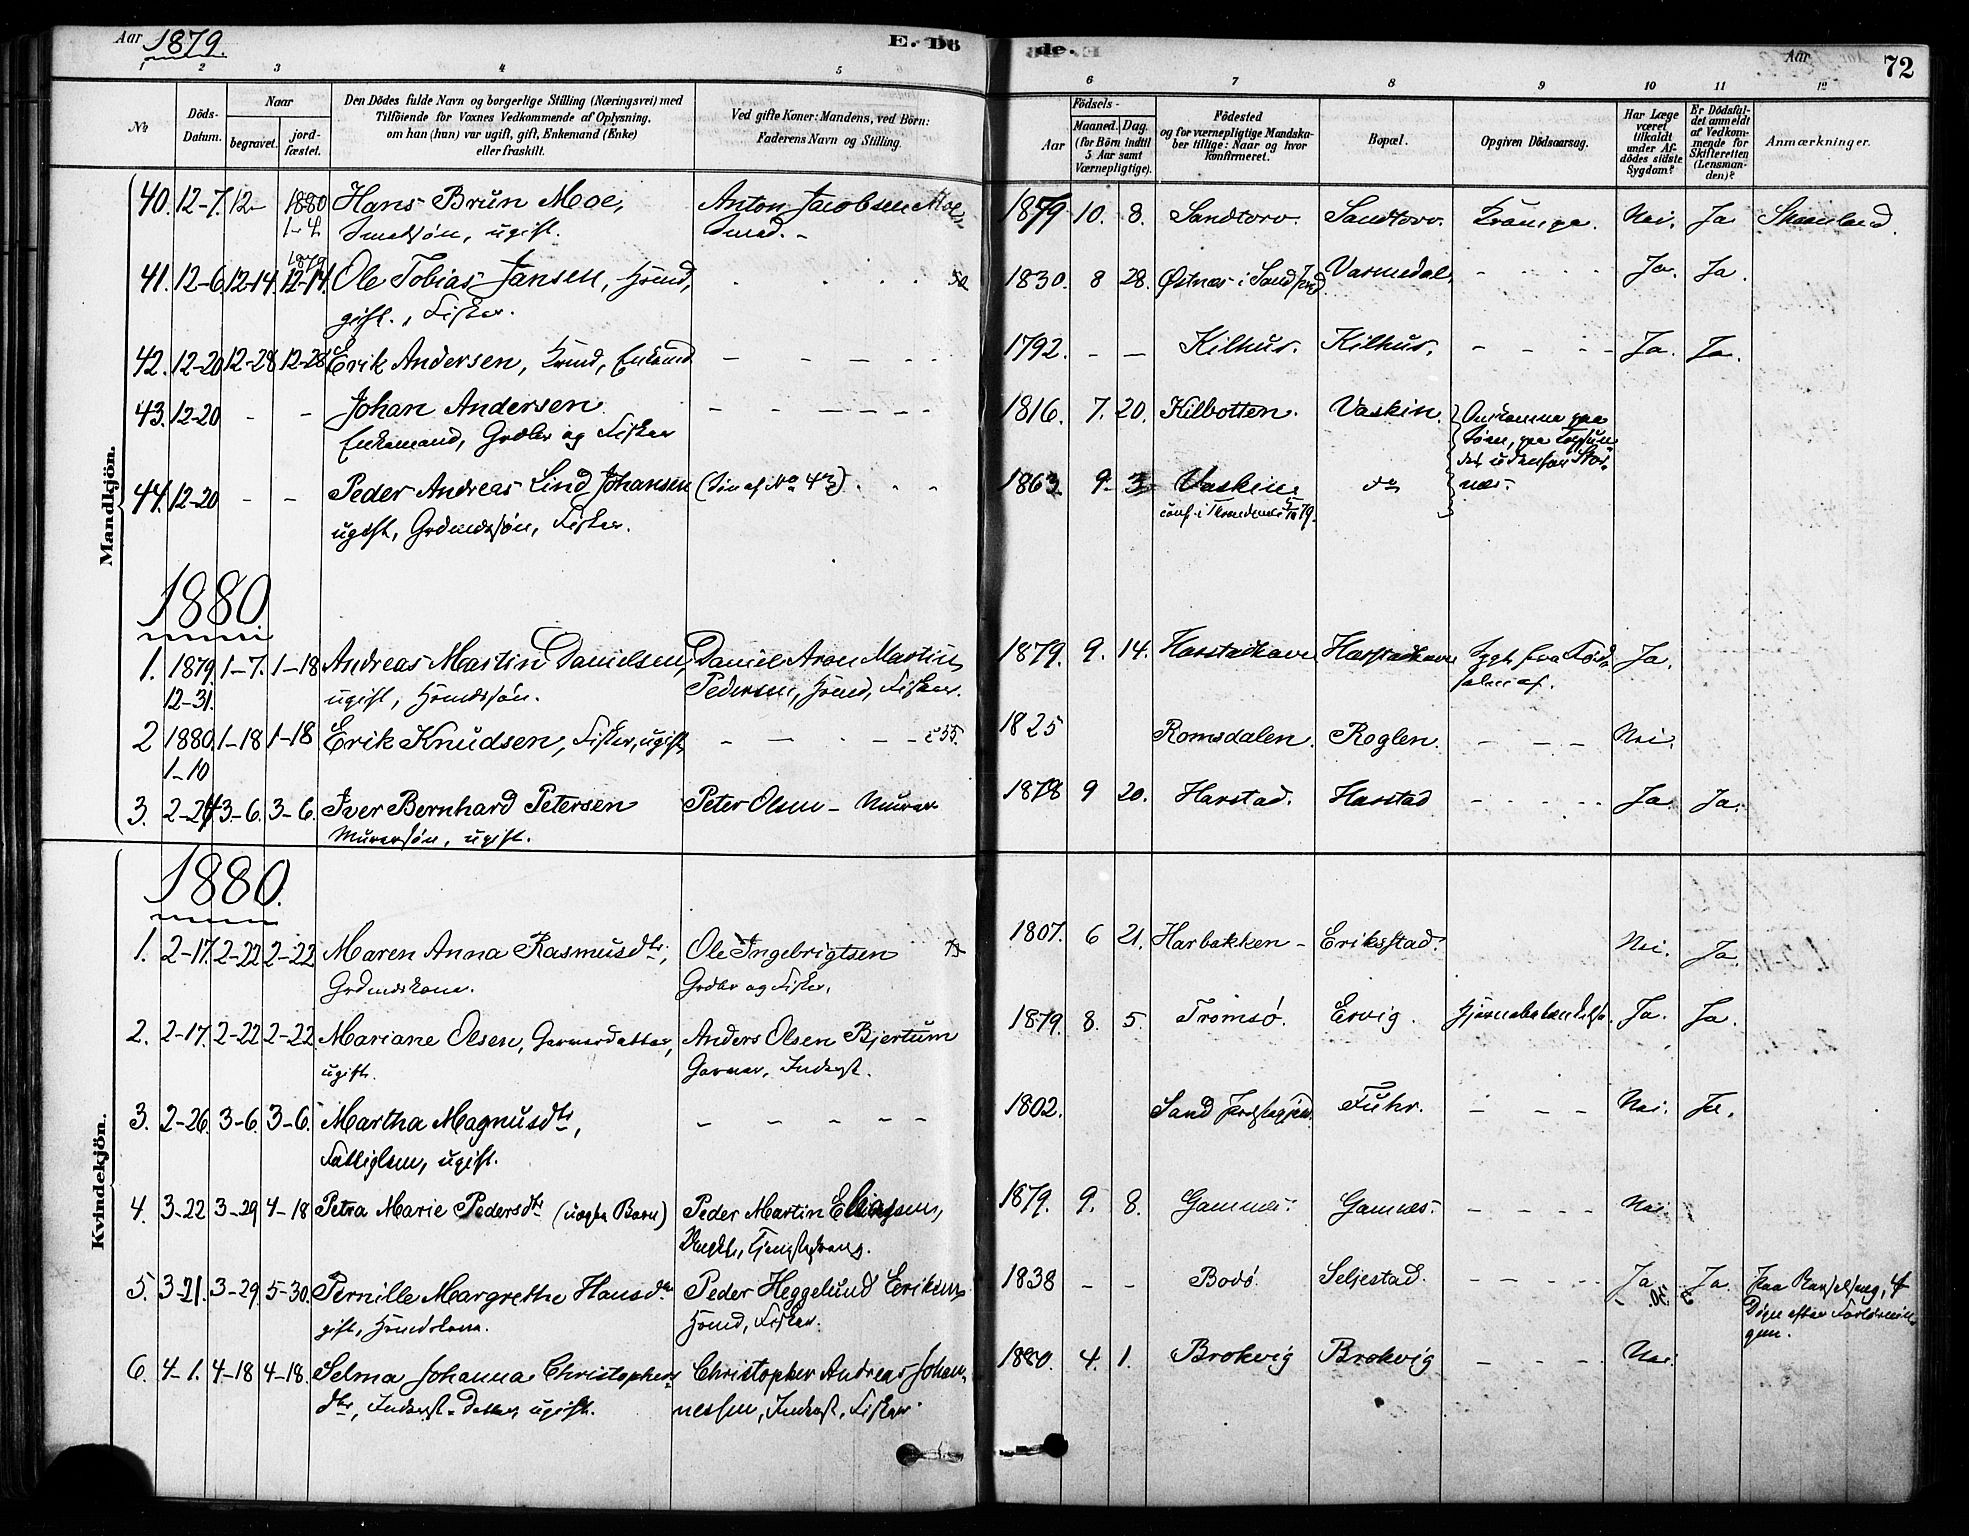 Aar 1879.
E. Dö
de. E
Aar
72
1 2 3 4 5
6 7 8 9 10 11 12
No
Döds-Datum.
Naar
begravet.
jord-fæstet.
Den Dödes fulde Navn og borgerlige Stilling (Næringsvei) med
Tilföiende for Voxnes Vedkommende af Oplysning,
om han (hun) var ugift, gift, Enkemand (Enke)
eller fraskilt.
Ved gifte Koner: Mandens, ved Börn:
Faderens Navn og Stilling.
Födsels-
Aar
Maaned. Dag.
(for Börn indtil
5 Aar samt
Værnepligtige).
Födested
og for værnepligtige Mandska-
ber tillige: Naar og hvor
konfirmeret.
Bopæl.
Opgiven Dödsaarsag.
Har Læge
været
tilkaldt
under Af-
dödes sidste
Sygdom?
Er Dödsfal-
det anmeldt
af Vedkom-
mende for
Skifteretten
(Lensman-
den)?
Anmærkninger.
Mandkjön.
40. 12-7. 12- 1880 Hans Brun Moe, Anton Jacobsen Moe 1879 10. 8. Sandtorv. Sandtorv. Krampe. Nei. Ja Skaanland.
1-4 Smedsøn, ugift. Smed. -
1879
41. 12-6 12-14. 12-14. Ole Tobias Jansen, Hmd, 50 1830. 8 28. Østnes i Sand Varmedal. - - - - Ja. Ja.
gift., Fisker.
42. 12-20 12-28 12-28 Erik Andersen, Enkemd. - - - - - 1792. - - Kilhus. Kilhus. - - - - Ja. Ja.
43. 12-20 - - Johan Andersen - - - - - - 1816. 7. 20. Kilbotten. Vaskin. Omkomne paa
Enkemand, Grdbr og Fisker Søen, paa
det udenfor
44. 12-20 - - Peder Andreas Lind Johansen (Søn af No 43) - - 1863. 9. 3. Vaskin. do nes.
ugift, Grdmdssøn, Fisker. conf. i Trondenes 79.
1880
1. 1879. 1-7. 1-18 Andreas Martin Danielsen, Daniel Aron Martin 1879. 9. 14. Harstadhavn Harstadhavn Sygt fra Fød- Ja.
12-31. ugift, Hmdssøn. Pedersen, Hmd, Fisker. selen af.
2 1880. 1-18 1-18 Erik Knudsen, Fisker, ugift - - - - - c 55. 1825 Romsdalen. Roglen. - - - Nei.
1-10
3. 2-24 3-6. 3-6. Iver Bernhard Petersen Peter Olsen - Murer 1878 9 20. Harstad. Harstad - - - - - Ja. Ja.
Murersøn, ugift.
Kvindekjön.
1880.
1. 2-17. 2-22 2-22. Maren Anna Rasmusdtr, Ole Ingebrigtsen 73 1807. 6 21. Harbakken - Eriksstad. Nei. Ja.
Grdmdskone. Grdbr og Fisker,
2. 2-17. 2-22 2-22. Mariane Olsen, Garverdatter, Anders Olsen Bjertum 1879. 8. 5. Tromsø. Ervig. Hjernebetændelse. Ja. Ja.
ugift. Garver, Inderst.
3. 2-26. 3-6. 3-6. Martha Magnusdtr, - - - - - 1802. Sand Præstegjeld. Fuhr. - - - Nei. Ja.
Fattiglem, ugift.
4. 3-22 3-29 4-18 Petra Marie Pedersdtr (uægte Barn) Peder Martin Eliassen, 1879. 9. 8. Gamnes. Gamnes. - - - - Nei.
Ungkl., Tjenestedreng.
5. 3-21. 3-29. 5-30. Pernille Margrethe Hansdtr Peder Heggelund Eriksen 1838 - - Bodø. Seljestad. - - - - Ja Ja. paa Barselseng, 4
gift, Hmdskone. Hmd, Fisker. Døgn efter Forløsnin-
gen.
6. 4-1. 4-18 4-18. Selma Johanna Christophers- Christopher Andreas Johan- 1880. 4. 1. Brokvig Brokvig - - - Nei.
dtr, Inderst-Datter, ugift. nessen, Inderst, Fisker.